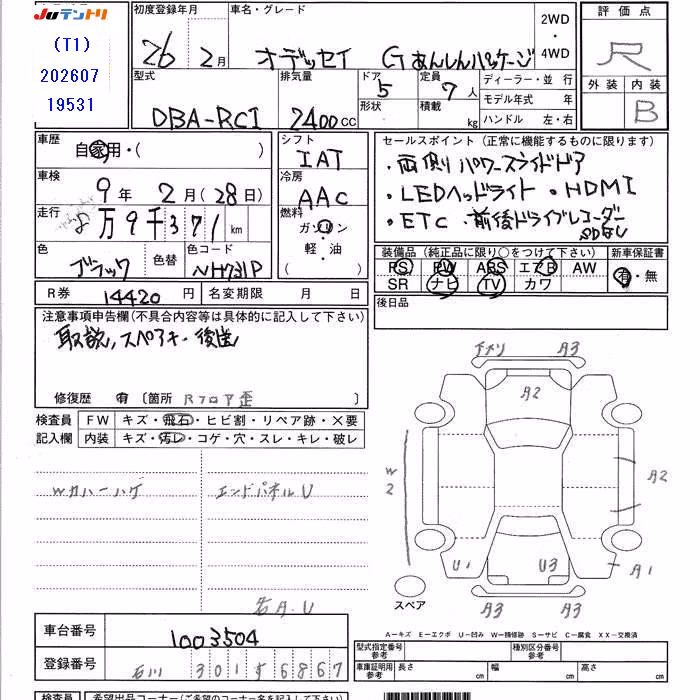 JUテントリ
(T1)
202607
19531
初度登録年月
26 2月
車名・グレード
オデッセイ Gあんしんパッケージ
2WD
・
4WD
評価点
R
外装 内装
B
型式
DBA-RC1
排気量
2400cc
ドア 5
形状
定員 7人
積載 kg
ディーラー・並行
モデル年式 年
ハンドル 左・右
車歴
自家用・( )
車検
9年 2月(28日)
走行
万9千371km
色
ブラック
色替
色コード
NH731P
シフト
IAT
冷房
AAC
燃料
ガソリン
軽・油
( )
セールスポイント(正常に機能するものに限ります)
・両側パワースライドドア
・LEDヘッドライト ・HDMI
・ETC ・前後ドライブレコーダー
SDなし
装備品(純正品に限り○をつけて下さい)
新車保証書
PS PW ABS エアB AW
SR ナビ TV カワ
有・無
R券 14420円 名変期限 月 日
後日品
注意事項申告欄(不具合内容等は具体的に記入して下さい)
取説,スペアキー後送
修復歴 有 〔箇所 Rフロア歪 〕
検査員 FW キズ・飛石・ヒビ割・リペア跡・X要
記入欄 内装 キズ・汚レ・コゲ・穴・スレ・キレ・破レ
Wカバーハゲ
エンドパネルU
右A.U
アメリ A3
A2
W2
A2
U1 U3 A1
A3 A3
スペア
A-キズ E-エクボ U-凹み W-補修跡 S-サビ C-腐食 XX-交換済
車台番号 1003504
登録番号 石川 301 す 6867
型式指定番号
参考
種別区分番号
参考
車庫証明用
参考
長さ cm 幅 cm 高さ cm
検査員 希望出品コーナー(ご希望のコーナー名を記入して下さい)